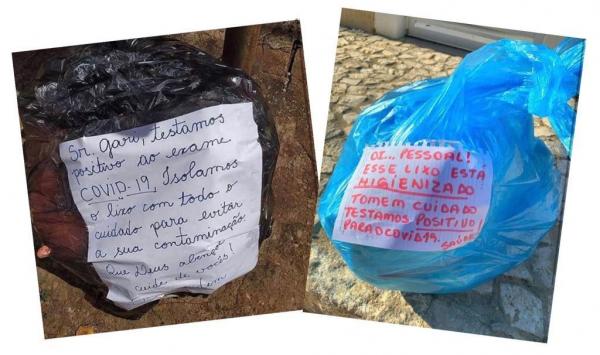 Sr. Gari, testamos
positivo ao exame
COVID-19. Isolamos
o lixo com todo o
cuidado para evitar
a sua contaminação.
Que Deus abençoe
cuide de vocês!
OI... PESSOAL!
ESSE LIXO ESTÁ
HIGIENIZADO
TOMEM CUIDADO
TESTAMOS POSITIVO!
PARA O COVID19.
SAÚDE